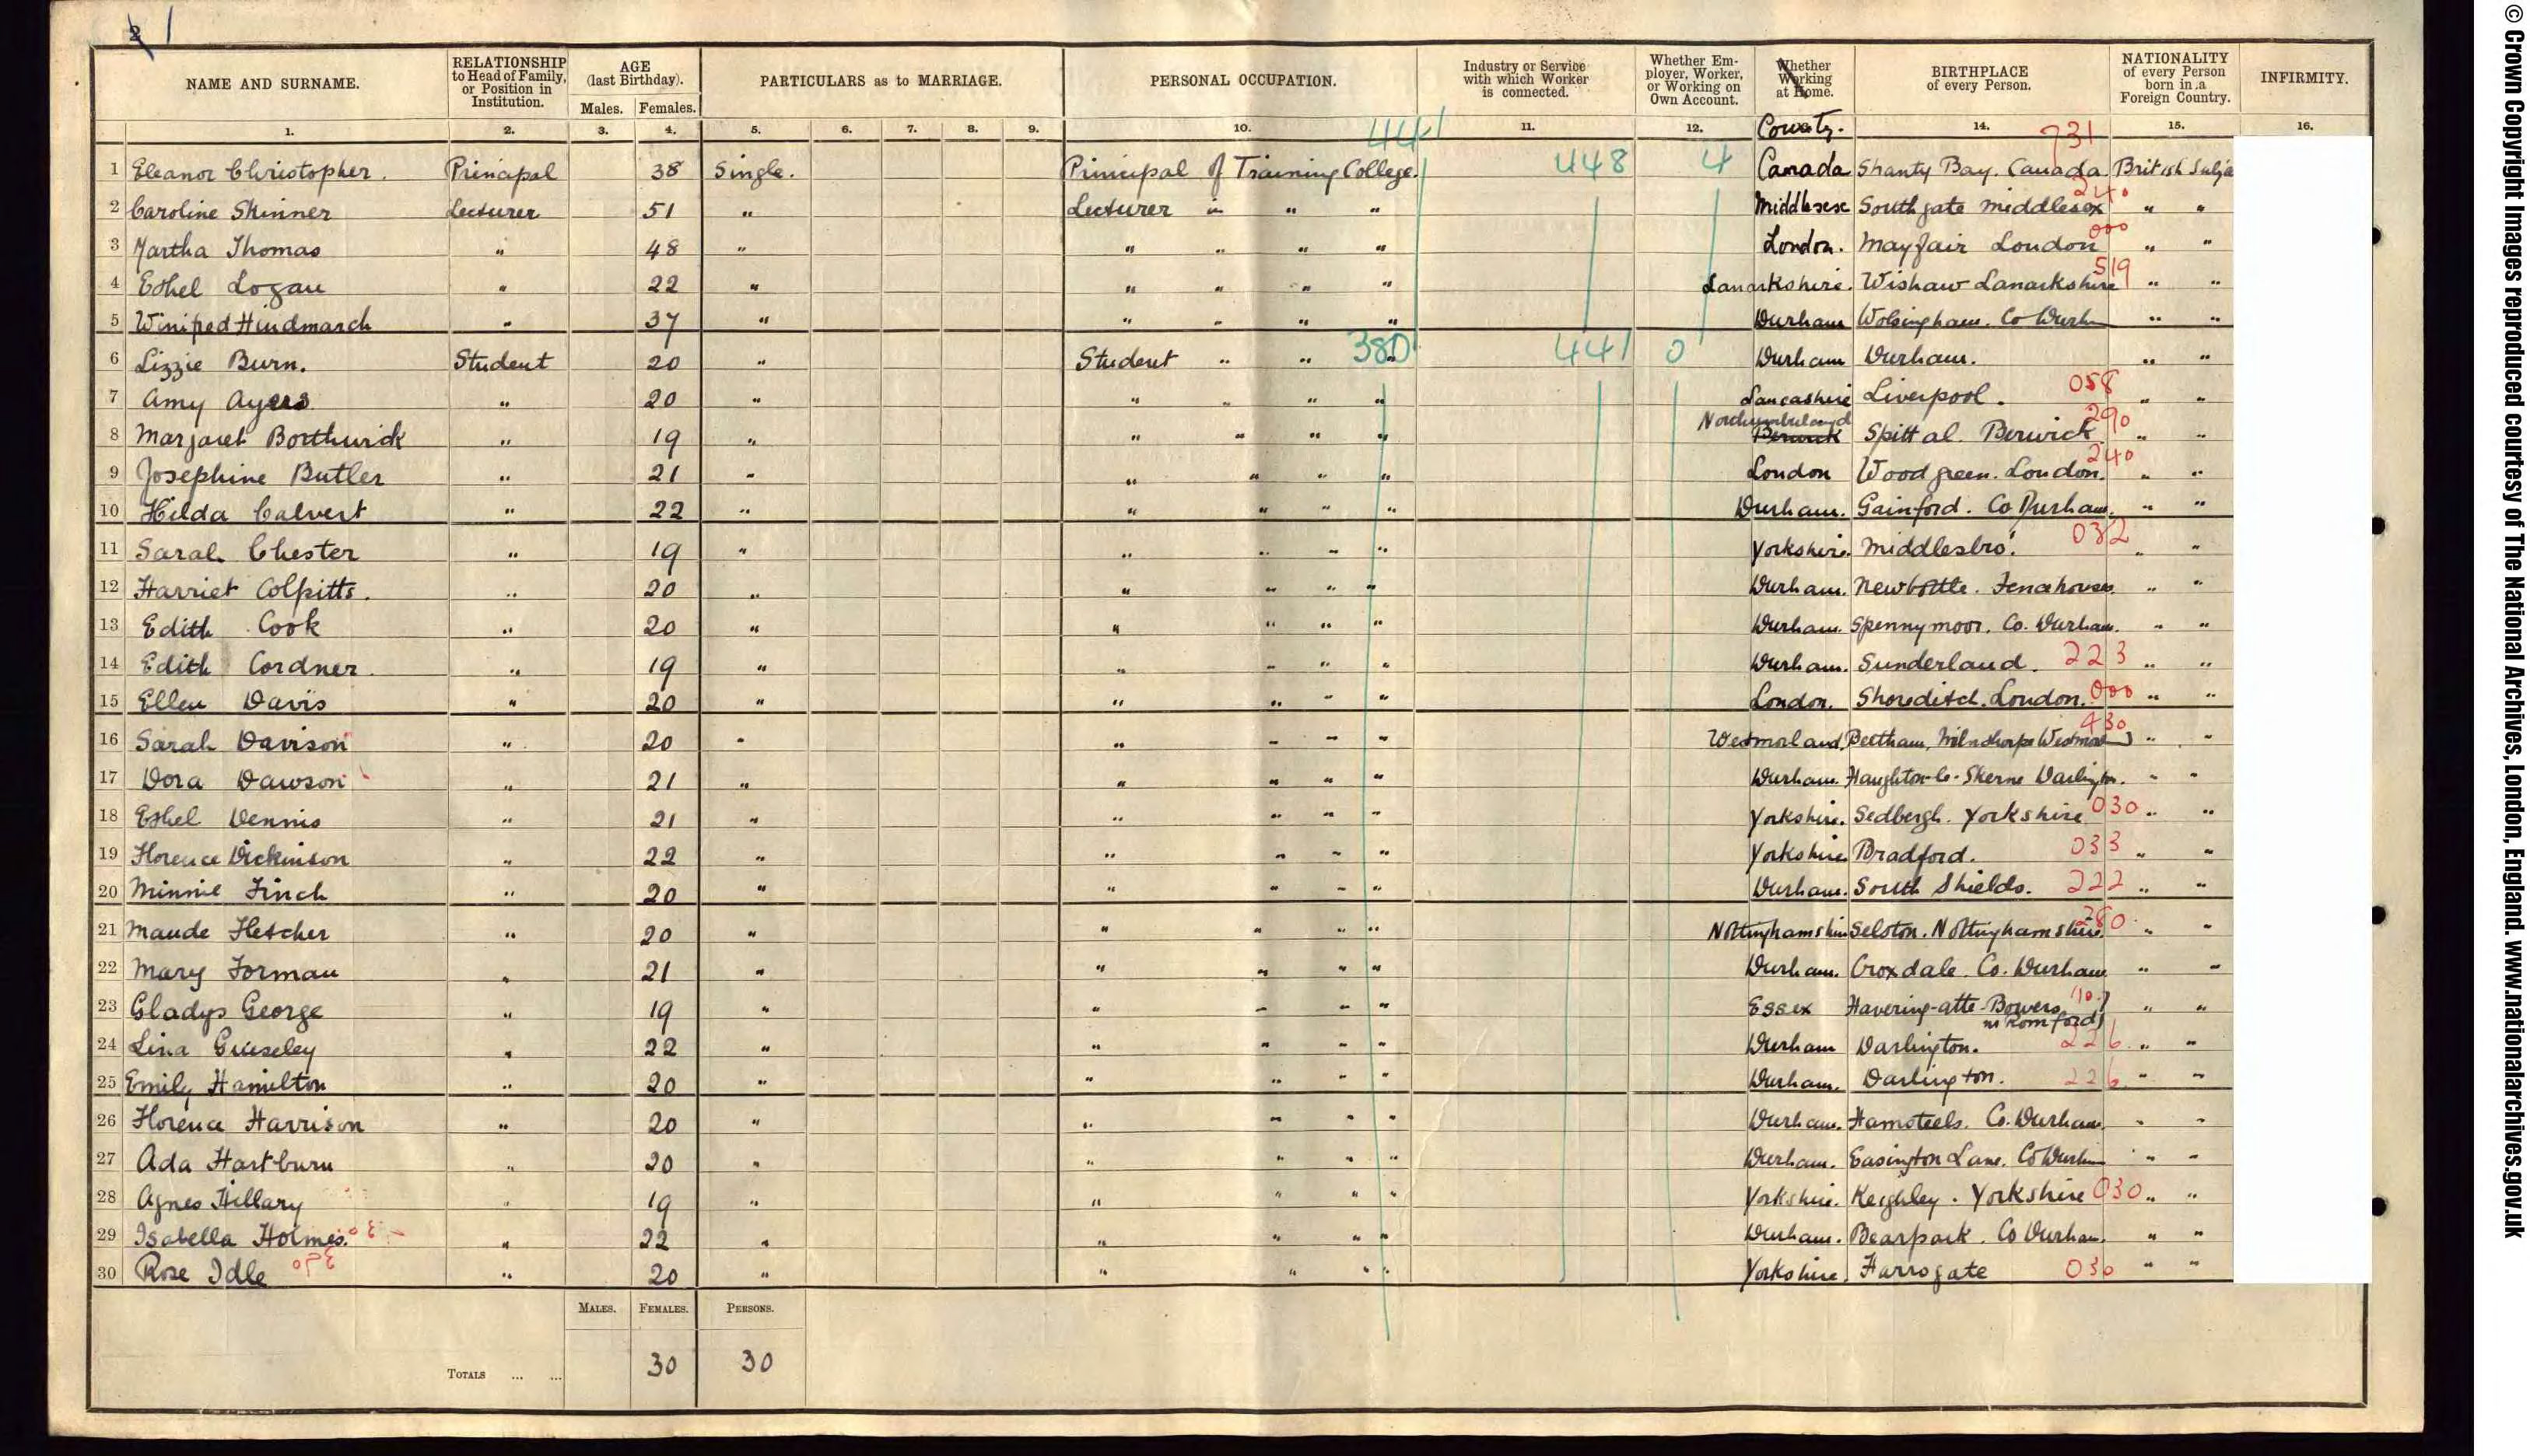 2 1
NAME AND SURNAME. RELATIONSHIP to Head of Family, or Position in Institution. AGE (last Birthday). Males. Females. PARTICULARS as to MARRIAGE. PERSONAL OCCUPATION. Industry or Service with which Worker is connected. Whether Employer, Worker, or Working on Own Account. Whether Working at Home. BIRTHPLACE of every Person. NATIONALITY of every Person born in a Foreign Country. INFIRMITY.
1. 2. 3. 4. 5. 6. 7. 8. 9. 10. 441 11. 12. County. 14. 15. 16.
1 Eleanor Christopher. Principal 38 Single. Principal of Training College. 448 4 Canada Shanty Bay. Canada 731 British
2 Caroline Skinner Lecturer 51 " Lecturer in " " Middlesex Southgate Middlesex 240 " "
3 Martha Thomas " 48 " " " " " London. Mayfair London 000 " "
4 Ethel Logan " 22 " " " " " Lanarkshire. Wishaw Lanarkshire 519 " "
5 Winifred Hindmarch " 37 " " " " " Durham Wolsingham. Co Durham " "
6 Lizzie Burn. Student 20 " Student " " " 380 441 0 Durham Durham. " "
7 Amy Ayers " 20 " " " " " Lancashire Liverpool. 058 " "
8 Margaret Borthwick " 19 " " " " " Northumberland Berwick Spittal. Berwick 290 " "
9 Josephine Butler " 21 " " " " " London Wood green. London. 240 " "
10 Hilda Calvert " 22 " " " " " Durham. Gainford. Co Durham. " "
11 Sarah Chester " 19 " " " " " Yorkshire. Middlesbro'. 032 " "
12 Harriet Colpitts. " 20 " " " " " Durham. Newbottle. Fencehouses. " "
13 Edith Cook " 20 " " " " " Durham. Spennymoor. Co. Durham. " "
14 Edith Cordner. " 19 " " " " " Durham. Sunderland. 223 " "
15 Ellen Davis " 20 " " " " " London. Shoreditch. London. 000 " "
16 Sarah Davison " 20 " " " " " Westmorland. Beetham, Milnthorpe 430 " "
17 Dora Dawson " 21 " " " " " Durham. Haughton-le-Skerne Darlington. " "
18 Ethel Dennis " 21 " " " " " Yorkshire. Sedbergh. Yorkshire 030 " "
19 Florence Dickinson " 22 " " " " " Yorkshire Bradford. 033 " "
20 Minnie Finch " 20 " " " " " Durham. South Shields. 222 " "
21 Maude Fletcher " 20 " " " " " Nottinghamshire Selston. Nottinghamshire. 280 " "
22 Mary Forman " 21 " " " " " Durham. Croxdale. Co. Durham " "
23 Gladys George " 19 " " " " " Essex Havering-atte-Bowers nr Romford 110 " "
24 Lina " 22 " " " " " Durham Darlington. 226 " "
25 Emily Hamilton " 20 " " " " " Durham. Darlington. 226 " "
26 Florence Harrison " 20 " " " " " Durham. Hamsteels. Co. Durham. " "
27 Ada Hartburn " 20 " " " " " Durham. Easington Lane. Co Durham " "
28 Agnes Hillary " 19 " " " " " Yorkshire. Keighley. Yorkshire 030 " "
29 Isabella Holmes. " 22 " " " " " Durham. Bearpark. Co Durham. " "
30 Rose Idle " 20 " " " " " Yorkshire. Harrogate 030 " "
MALES. FEMALES. PERSONS.
TOTALS ... ... 30 30
© Crown Copyright Images reproduced courtesy of The National Archives, London, England. www.nationalarchives.gov.uk